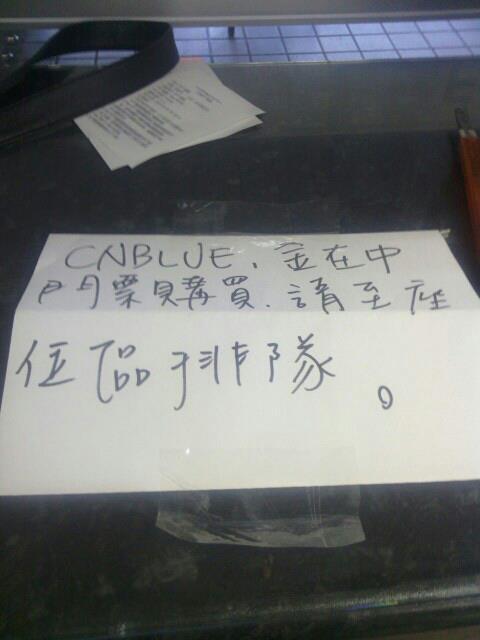 CNBLUE、金在中
門票購買．請至座
位區排隊。